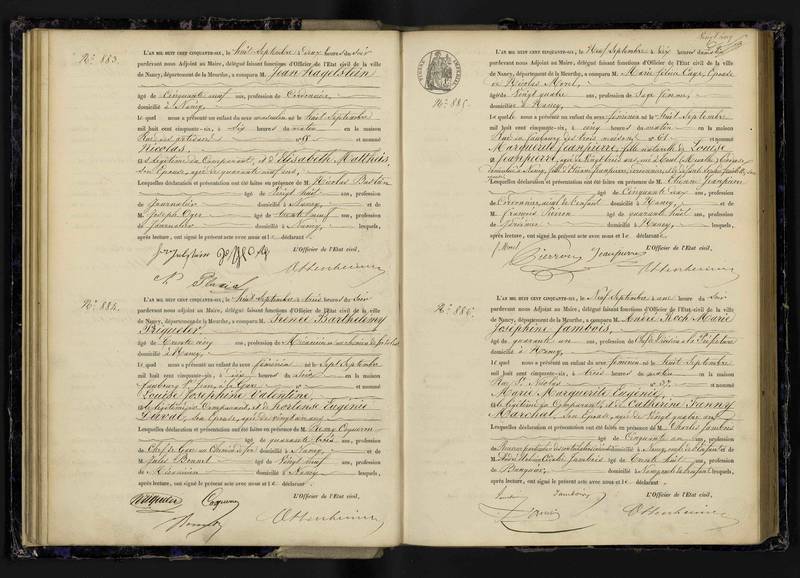 N° 883.
L'AN MIL HUIT CENT CINQUANTE-SIX, le huit Septembre à deux heures du soir
pardevant nous Adjoint au Maire, délégué faisant fonctions d'Officier de l'Etat civil de la ville
de Nancy, département de la Meurthe, a comparu M. Jean
âgé de Cinquante neuf ans, profession de Cordonnier,
domicilié à Nancy,
Lequel nous a présenté un enfant du sexe masculin né le huit Septembre
mil huit cent cinquante-six, à Six heures du matin en la maison
Rue des artisans et nommé
Nicolas,
fils légitime du Comparant, et d'Elisabeth Matthis,
Son Epouse, agée de quarante neuf ans,
Lesquelles déclaration et présentation ont été faites en présence de M. Nicolas
âgé de Vingt huit ans, profession
de Journalier domicilié à Nancy, et de
M. Joseph Oger âgé de trente neuf ans, profession
de Journalier domicilié à Nancy, lesquels,
après lecture, ont signé le présent acte avec nous et le déclarant
L'Officier de l'Etat civil,
Ottenheimer
N° 884.
L'AN MIL HUIT CENT CINQUANTE-SIX, le huit Septembre à trois heures du Soir
pardevant nous Adjoint au Maire, délégué faisant fonctions d'Officier de l'Etat civil de la ville
de Nancy, département de la Meurthe, a comparu M. Irénée Barthélemy
Briqueler
âgé de trente cinq ans, profession de Mécanicien au chemin de fer
domicilié à Nancy,
Lequel nous a présenté un enfant du sexe féminin né le Sept Septembre
mil huit cent cinquante-six, à heures du Soir en la maison
faubourg St Jean, à la Gare et nommé
Louise Joséphine Valentine,
fille légitime du Comparant, et d'hortense Eugénie
Son Epouse, agée de vingt
Lesquelles déclaration et présentation ont été faites en présence de M. Remy
âgé de quarante trois ans, profession
de Chef de Gare au Chemin de fer domicilié à Nancy, et de
M. Jules âgé de Vingt neuf ans, profession
de Mécanicien domicilié à Nancy lesquels,
après lecture, ont signé le présent acte avec nous et le déclarant
L'Officier de l'Etat civil,
Ottenheimer
N° 885.
L'AN MIL HUIT CENT CINQUANTE-SIX, le Neuf Septembre à dix heures du matin
pardevant nous Adjoint au Maire, délégué faisant fonctions d'Officier de l'Etat civil de la ville
de Nancy, département de la Meurthe, a comparu Marie Epouse
de Nicolas Morel,
âgée de Vingt quatre ans, profession de Sage femme,
domiciliée à Nancy,
Laquelle nous a présenté un enfant du sexe féminin né le huit Septembre
mil huit cent cinquante-six, à cinq heures du matin en la maison
Rue du faubourg des trois maisons n° 61 et nommé
Marguerite Jeanpierre, fille naturelle de Louise
Jeanpierre,
Lesquelles déclaration et présentation ont été faites en présence de M. Etienne Jeanpierre
âgé de Cinquante ans, profession
de Cordonnier, aïeul de l'enfant domicilié à Nancy, et de
M. François Pierron âgé de quarante huit ans, profession
de domicilié à Nancy, lesquels,
après lecture, ont signé le présent acte avec nous et la déclarante
L'Officier de l'Etat civil,
f. Morel Pierron Jeanpierre
Ottenheimer
N° 886.
L'AN MIL HUIT CENT CINQUANTE-SIX, le Neuf Septembre à une heure du Soir
pardevant nous Adjoint au Maire, délégué faisant fonctions d'Officier de l'Etat civil de la ville
de Nancy, département de la Meurthe, a comparu M. André Roch Marie
Joséphine Jambois,
âgé de quarante un ans, profession de Chef de Division à la Préfecture
domicilié à Nancy,
Lequel nous a présenté un enfant du sexe féminin né le huit Septembre
mil huit cent cinquante-six, à trois heures du matin en la maison
Rue St Nicolas n° 37 et nommé
Marie Marguerite Eugénie,
fille légitime du Comparant, et de Catherine Fanny
Marchal, Son Epouse, agée de Vingt quatre ans
Lesquelles déclaration et présentation ont été faites en présence de M. Charles Jambois
âgé de Cinquante ans, profession
domicilié à Nancy, oncle de l'enfant et de
M. Jambois âgé de trente huit ans, profession
de Banquier, domicilié à Nancy, oncle de l'enfant lesquels,
après lecture, ont signé le présent acte avec nous et le déclarant
L'Officier de l'Etat civil,
Jambois
Ottenheimer